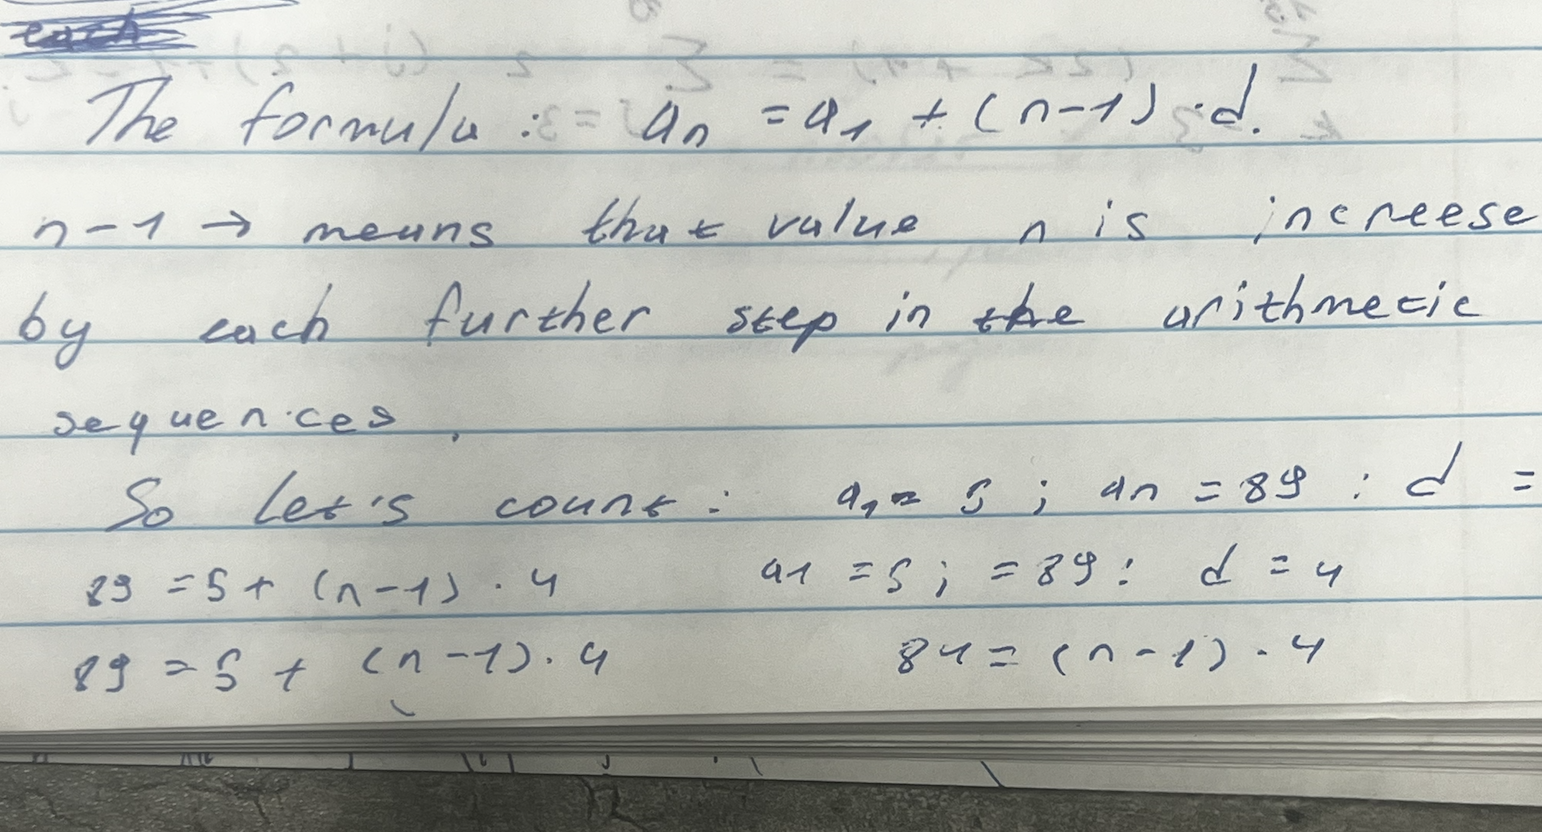 each
The formula : aₙ = a₁ + (n-1) · d.
n-1 → means that value n is increese
by each further step in the arithmetic
sequences.
So let's count : a₁ = 5 ; an = 89 : d =
89 = 5 + (n-1) · 4 a1 = 5 ; = 89 : d = 4
89 = 5 + (n-1) · 4 84 = (n-1) · 4